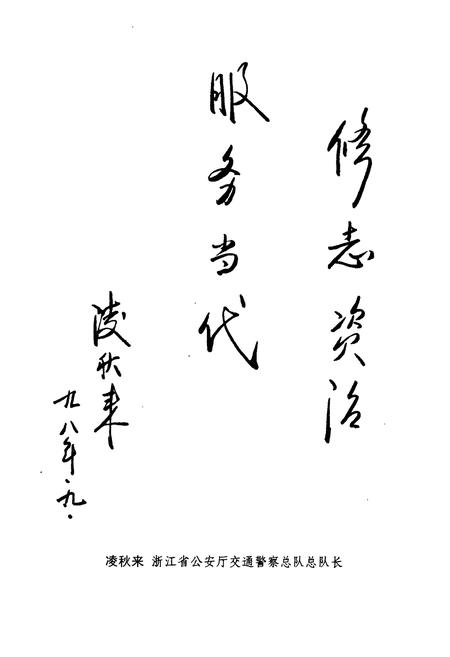 修志资治
服务当代
凌秋来
九八年.九.
凌秋来 浙江省公安厅交通警察总队总队长